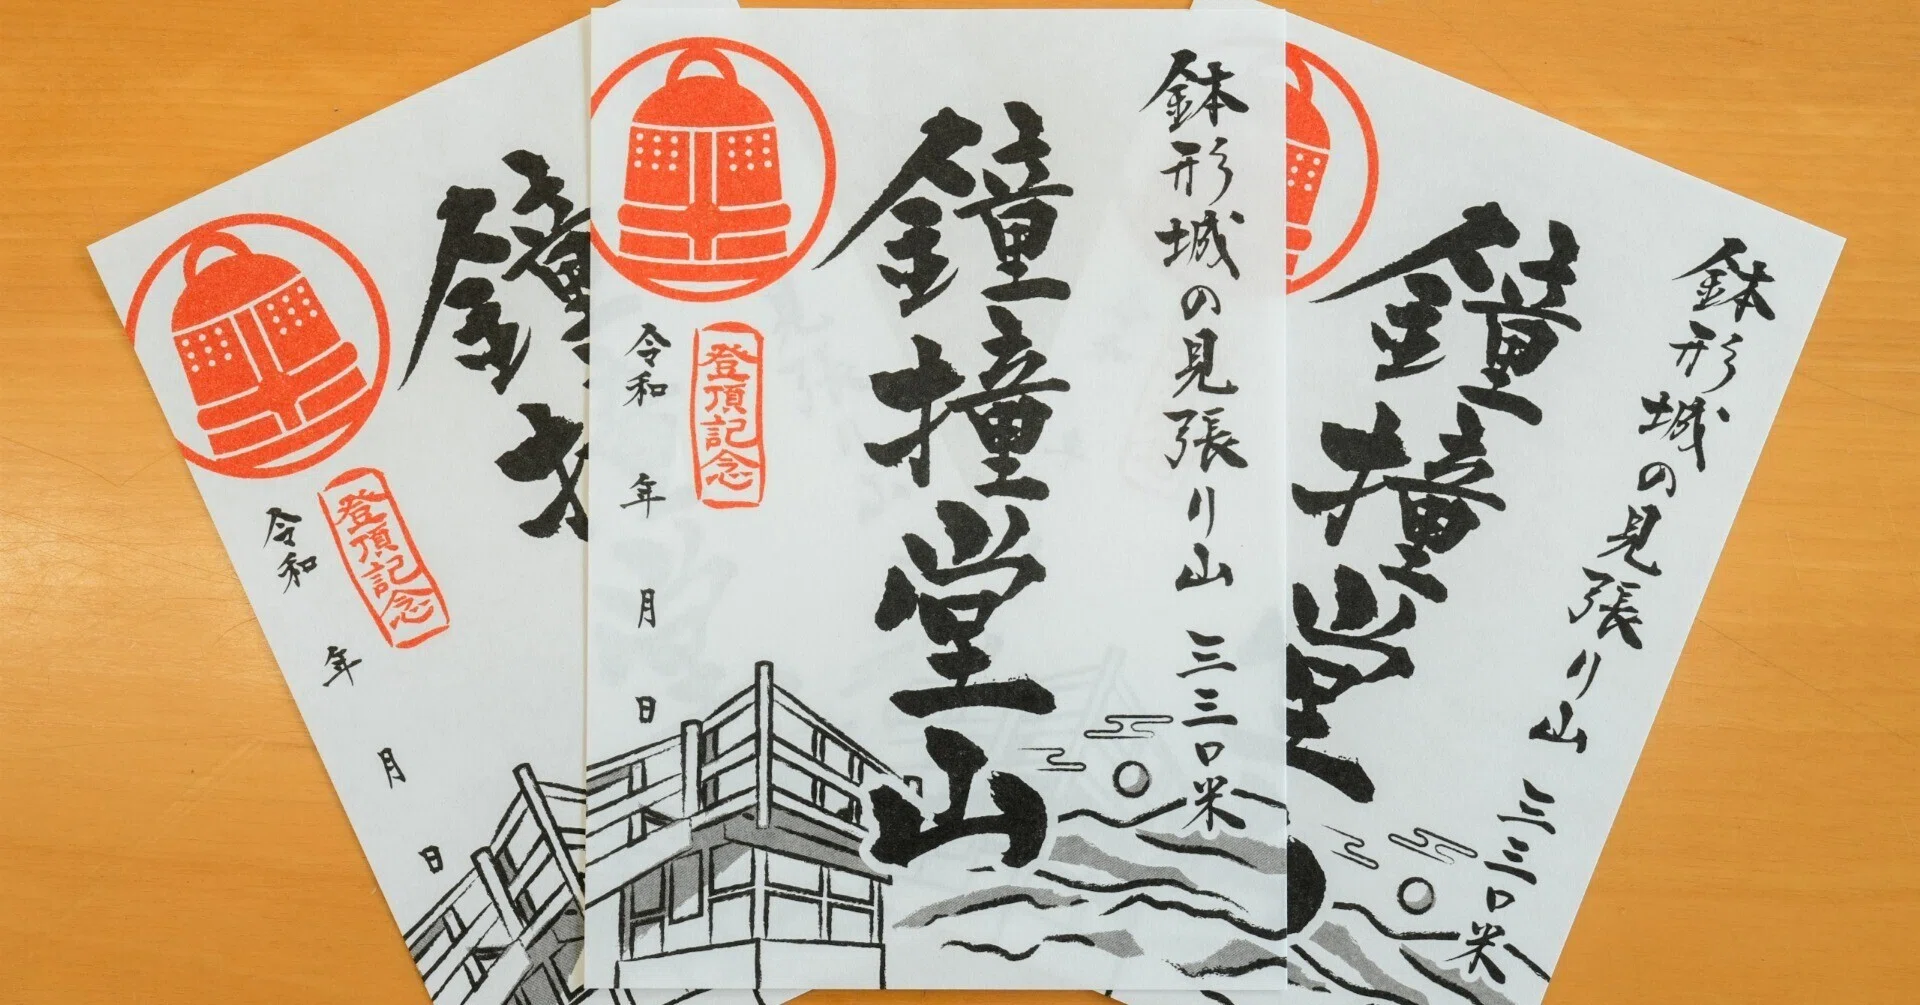 鐘撞
登頂記念
令和 年 月 日
鉢形城の見張り山 三三〇米
鐘撞堂山
登頂記念
令和 年 月 日
鉢形城の見張り山 三三〇米
鐘撞堂